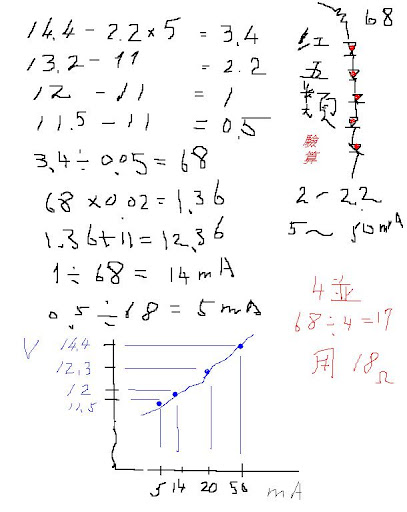 14.4 - 2.2 × 5 = 3.4
13.2 - 11 = 2.2
12 - 11 = 1
11.5 - 11 = 0.5
3.4 ÷ 0.05 = 68
68 × 0.02 = 1.36
1.36 + 11 = 12.36
1 ÷ 68 = 14 mA
0.5 ÷ 68 = 5 mA
68
紅
五
驗
算
2 ~ 2.2
5 ~ 50mA
4 並
68 ÷ 4 = 17
用 18Ω
V
14.4
12.3
12
11.5
5 14 20 50 mA